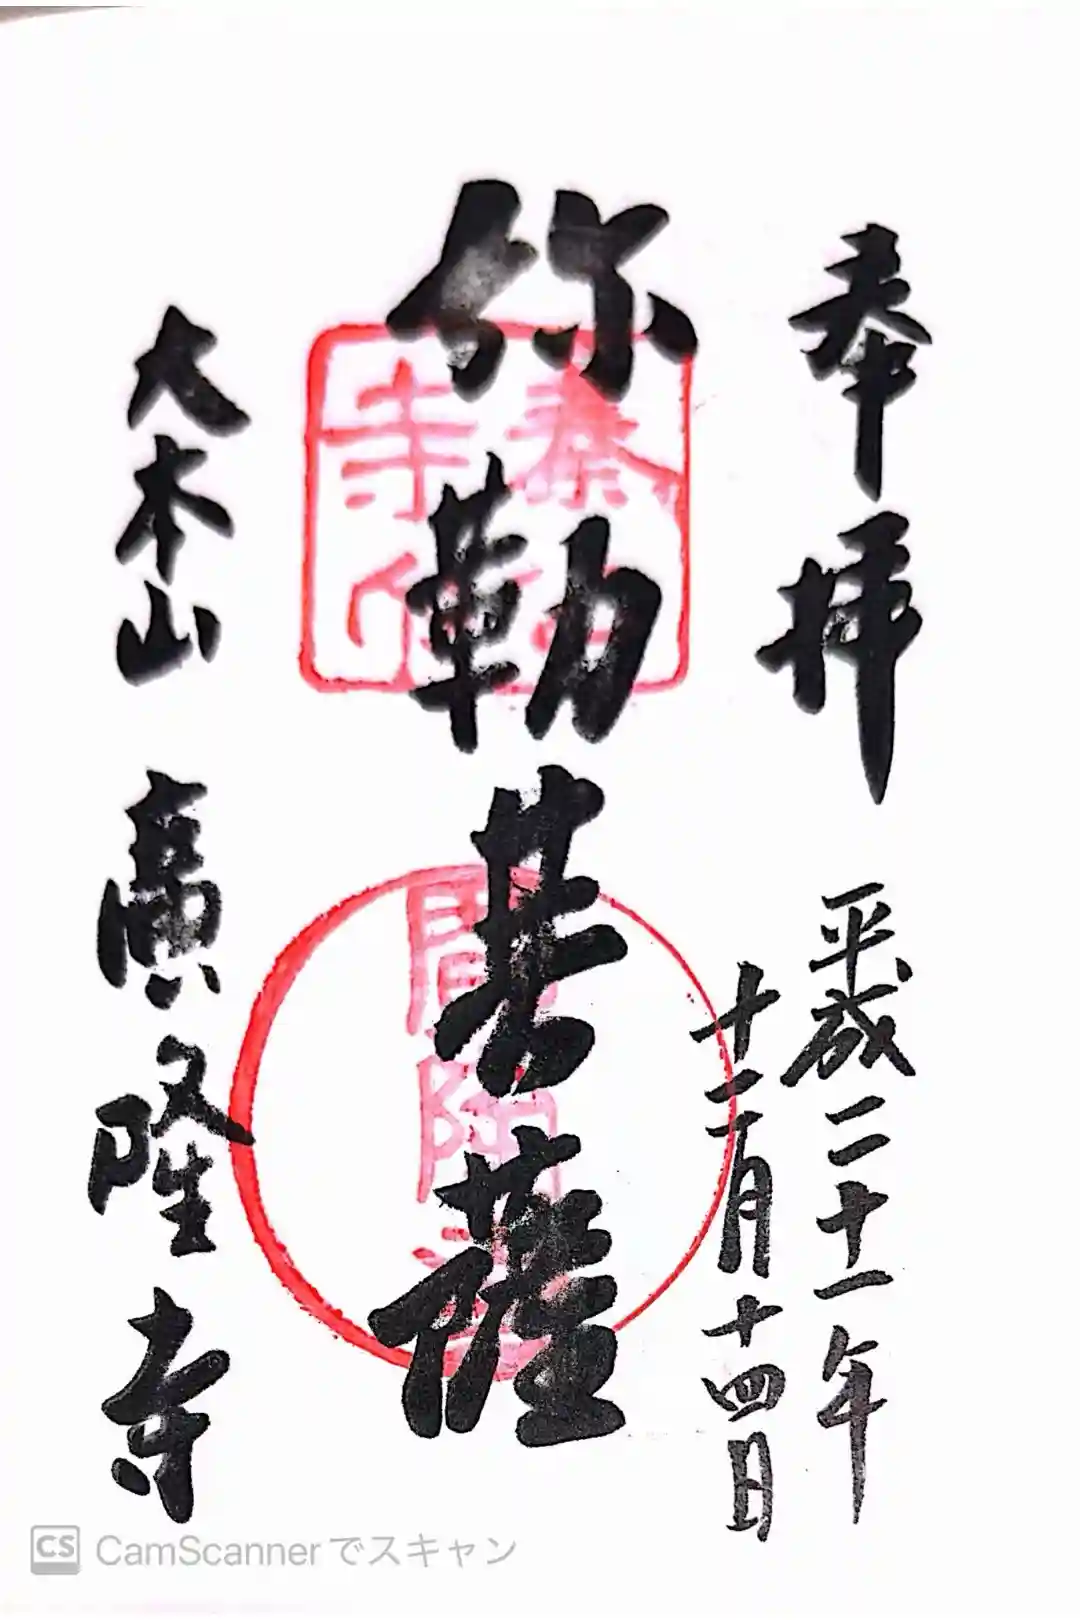 奉拝
平成二十一年
十二月十四日
弥勒菩薩
大本山 廣隆寺
CS CamScannerでスキャン